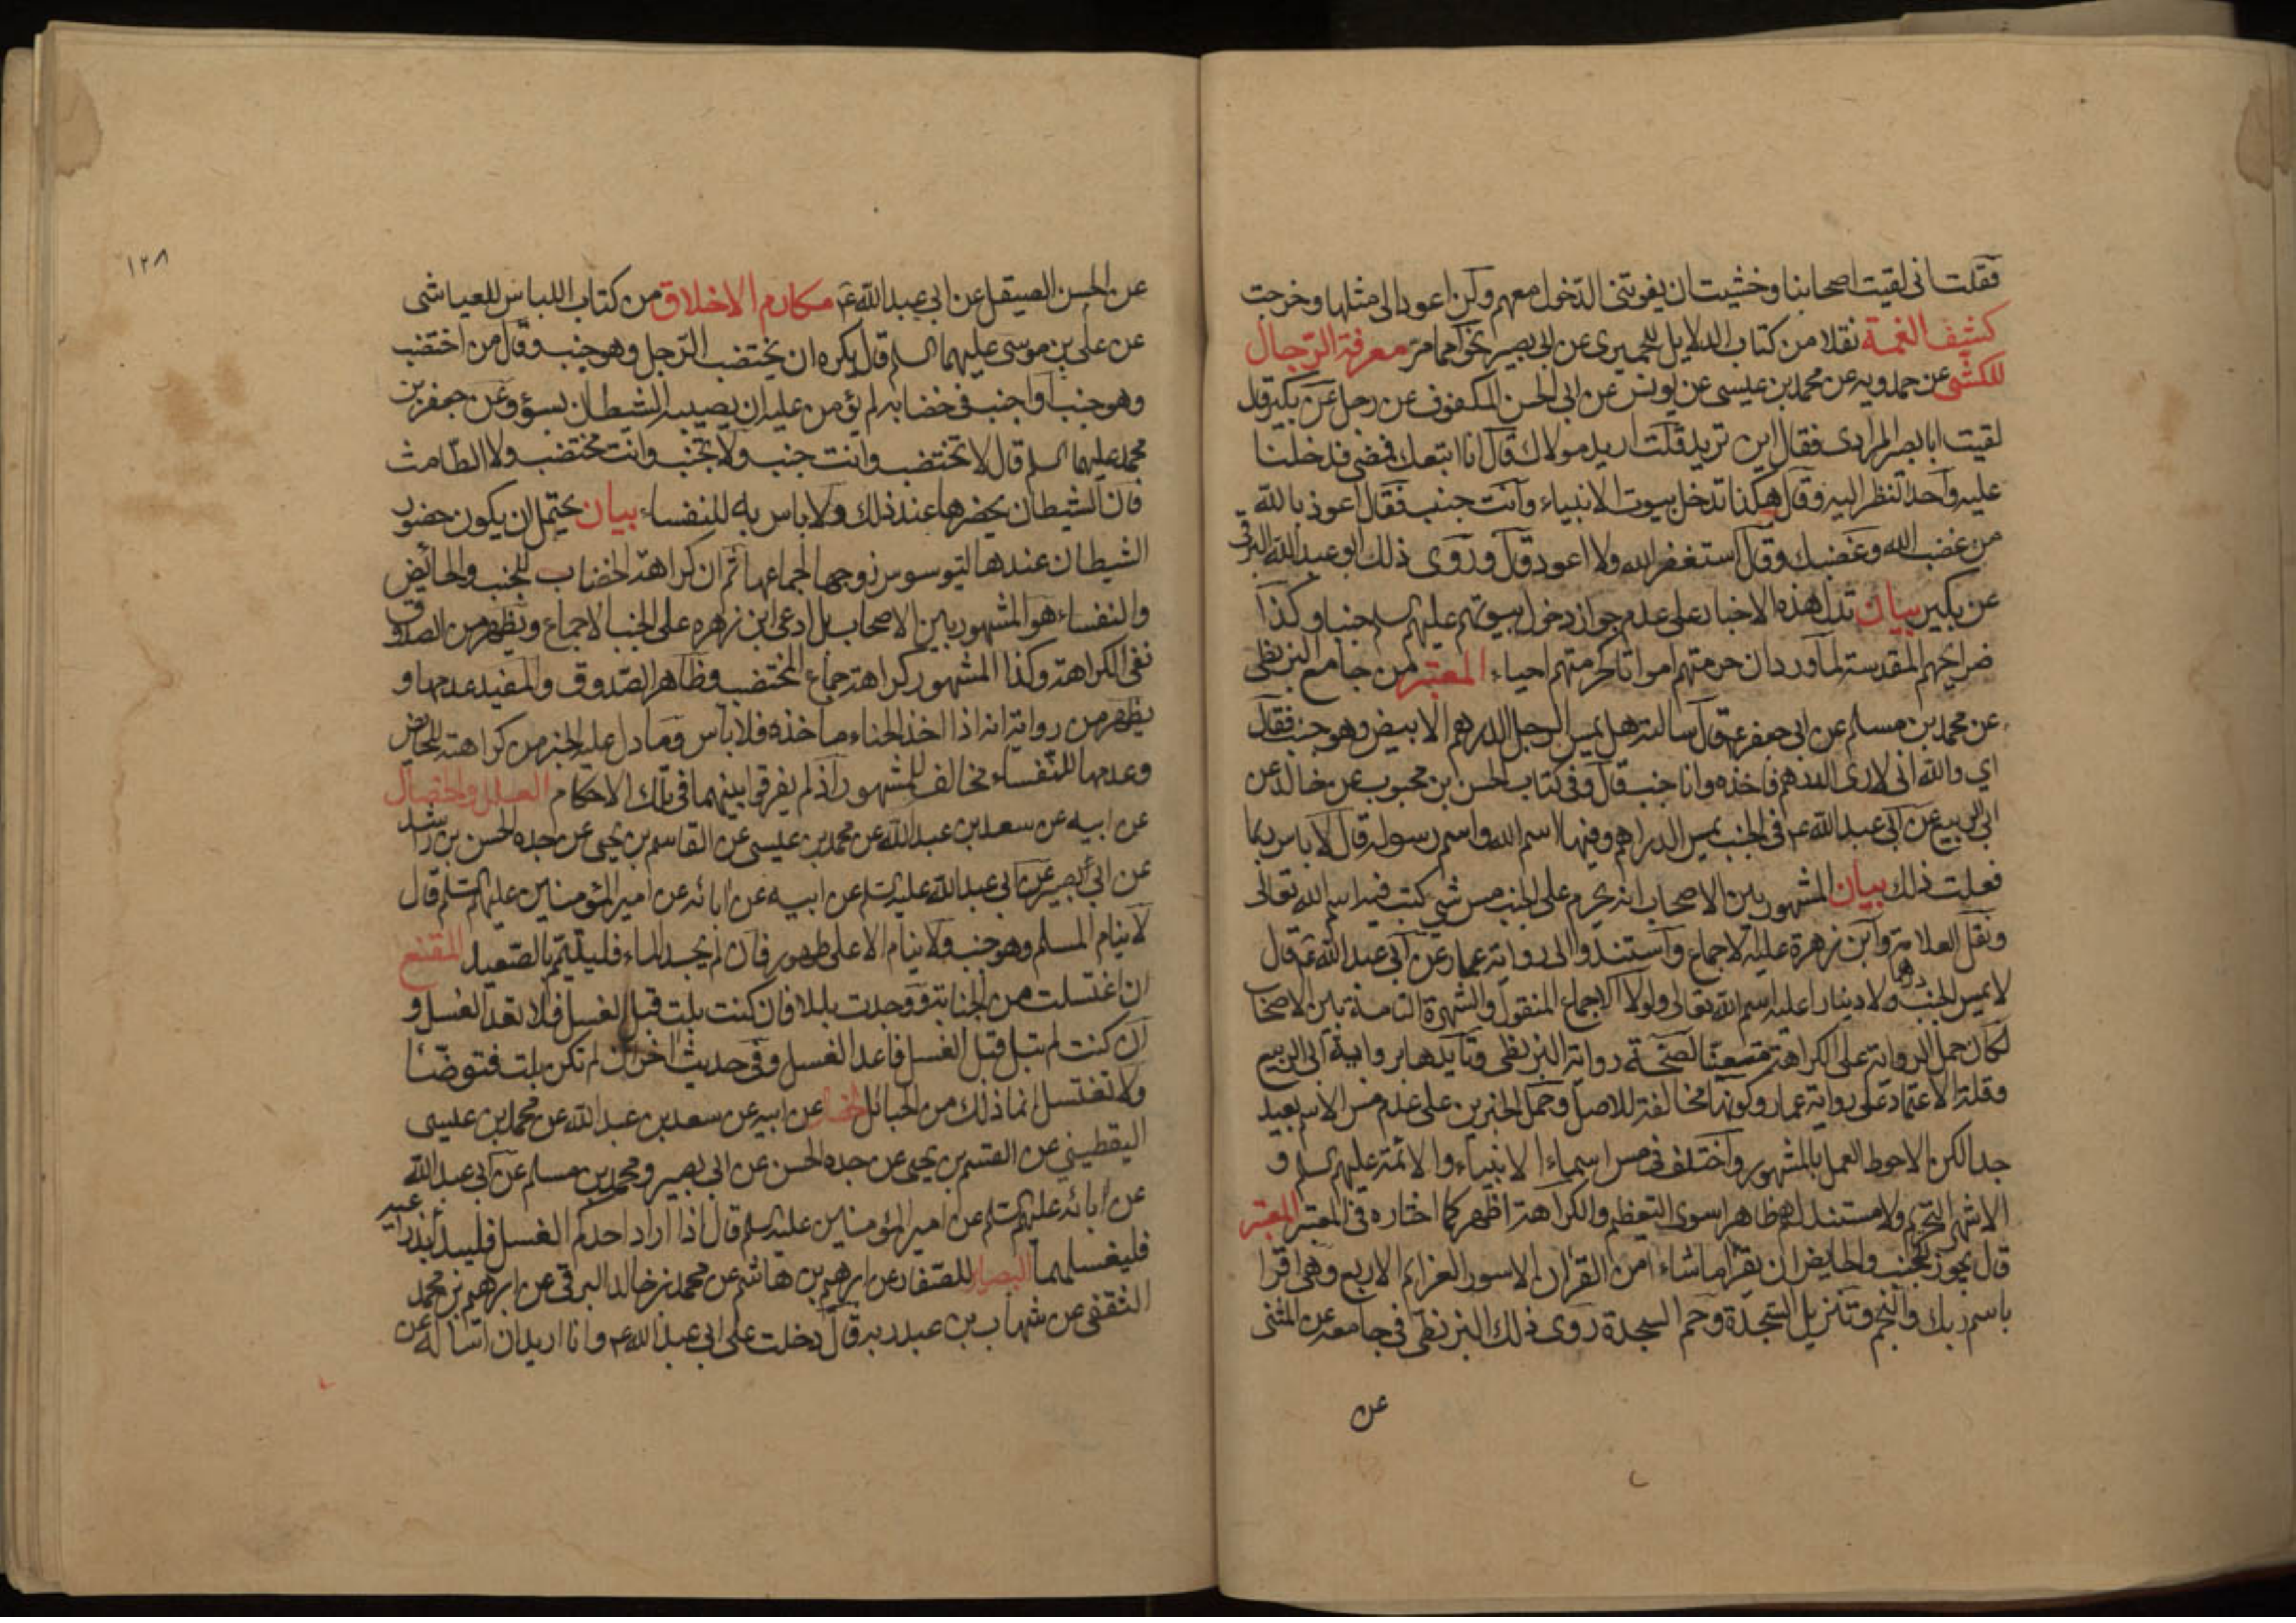 فقلت انى لقيت اصحابنا وخشيت ان يفوتنى الدّخول معهم ولن اعود الى مثلها وخرجت
كشف الغمة نقلا من كتاب الدلايل للحميرى عن ابى بصير نحوا مما مرّ معرفة الرّجال
للكشّى عن حمدويه عن محمد بن عيسى عن يونس عن ابى الحسن المكفوف عن رجل عن بكير قال
لقيت ابا بصير المرادى فقال اين تريد قلت اريد مولاك قال انا اتبعك فمضى فدخلنا
عليه واحدّ النظر اليه وقال هكذا تدخل بيوت الانبياء وانت جنب فقال اعوذ بالله
من غضب الله وغضبك وقال استغفر الله ولا اعود قال وروى ذلك ابو عبد الله البرقى
عن بكير بيان تدل هذه الاخبار على عدم جواز دخول بيوتهم عليهم السلم جنبا وكذا
ضرايحهم المقدسة لما ورد ان حرمتهم امواتا كحرمتهم احياء المعتبر من جامع البزنطى
عن محمد بن مسلم عن ابى جعفر ع قال سالته هل يمس الرجل الدرهم الابيض وهو جنب فقال
اي والله انى لارى الدرهم فاخذه وانا جنب قال وفى كتاب الحسن بن محبوب عن خالد عن
ابى الربيع عن ابى عبد الله ع فى الجنب يمس الدراهم وفيها اسم الله واسم رسوله قال لا باس ربما
فعلت ذلك بيان المشهور بين الاصحاب انه يحرم على الجنب مس شى كتب فيه اسم الله تعالى
ونقل العلامة وابن زهرة عليه الاجماع واستندوا الى رواية عمار عن ابى عبد الله ع قال
لا يمس الجنب درهما ولا دينارا عليه اسم الله تعالى ولولا الاجماع المنقول والشهرة التامة بين الاصحاب
لكان حمل الرواية على الكراهة متعينا لصحة رواية البزنطى وتأيدها برواية ابى الربيع
وقلة الاعتماد على رواية عمار وكونها مخالفة للاصل وحمل الخبرين على عدم مس الاسم بعيد
جدا لكن الاحوط العمل بالمشهور واختلف فى مس اسماء الانبياء والائمة عليهم السلم و
الاشهر التحريم ولا مستند لهم ظاهرا سوى التعظيم والكراهة اظهر كما اختاره فى المعتبر المعتبر
قال يجوز للجنب والحايض ان يقرا ما شاءا من القران الا سور العزايم الاربع وهى اقرا
باسم ربك والنجم وتنزيل السجدة وحم السجدة روى ذلك البزنطى فى جامعه عن المثنى
عن
١٢٨
عن الحسن الصيقل عن ابى عبد الله ع مكارم الاخلاق من كتاب اللباس للعياشى
عن على بن موسى عليهما السلم قال يكره ان يختضب الرّجل وهو جنب وقال من اختضب
وهو جنب او اجنب فى خضابه لم يؤمن عليه ان يصيبه الشيطان بسؤ وعن جعفر بن
محمد عليهما السلم قال لا تختضب وانت جنب ولا تجنب وانت مختضب ولا الطّامث
فان الشيطان يحضرها عند ذلك ولا باس به للنفساء بيان يحتمل ان يكون حضور
الشيطان عندها ليوسوس زوجها لجماعها ثم ان كراهة الخضاب للجنب والحائض
والنفساء هو المشهور بين الاصحاب بل ادعى ابن زهره على الجنب الاجماع ويظهر من الصدوق
نفى الكراهة وكذا المشهور كراهة جماع المختضب وظاهر الصّدوق والمفيد عدمها و
يظهر من رواية انه اذا اخذ الحناء ماخذه فلا باس وما دل عليه الخبر من كراهته للحائض
وعدمها للنفساء مخالف للمشهور اذ لم يفرقوا بينهما فى تلك الاحكام العلل والخصال
عن ابيه عن سعد بن عبد الله عن محمد بن عيسى عن القاسم بن يحيى عن جده الحسن بن راشد
عن ابى بصير عن ابى عبد الله عليه السلم عن ابيه عن ابائه عن امير المؤمنين عليهم السلم قال
لا ينام المسلم وهو جنب ولا ينام الا على طهور فان لم يجد الماء فليتيمّم بالصّعيد المقنع
ان اغتسلت من الجنابة ووجدت بللا فان كنت بلت قبل الغسل فلا تعد الغسل و
ان كنت لم تبل قبل الغسل فاعد الغسل وفى حديث اخر ان لم تكن بلت فتوضّا
ولا تغتسل انما ذلك من الحبائل عن ابيه عن سعد بن عبد الله عن محمد بن عيسى
اليقطيني عن القسم بن يحيى عن جده الحسن عن ابى بصير ومحمد بن مسلم عن ابى عبد الله
عن ابائه عليهم السلم عن امير المؤمنين عليه السلم قال اذا اراد احدكم الغسل فليبدا بذراعيه
فليغسلهما البصاير للصّفار عن ابرهيم بن هاشم عن محمد بن خالد البرقى عن ابرهيم بن محمد
الثقفى عن شهاب بن عبد ربه قال دخلت على ابى عبد الله ع وانا اريد ان اساله عن